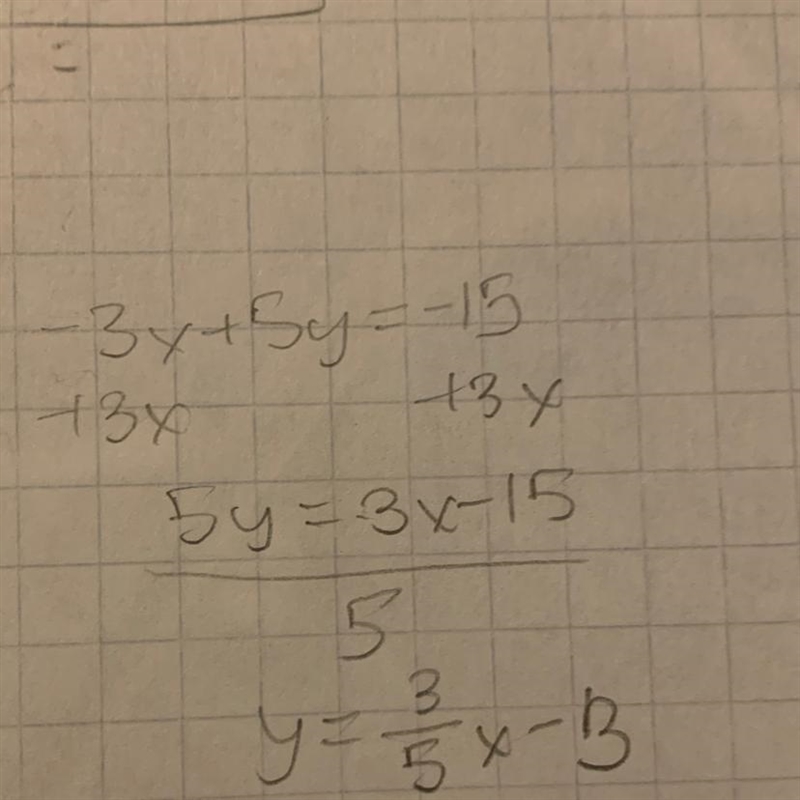 =
-3x+5y=-15
+3x +3x
5y=3x-15
5
y=3/5x-3